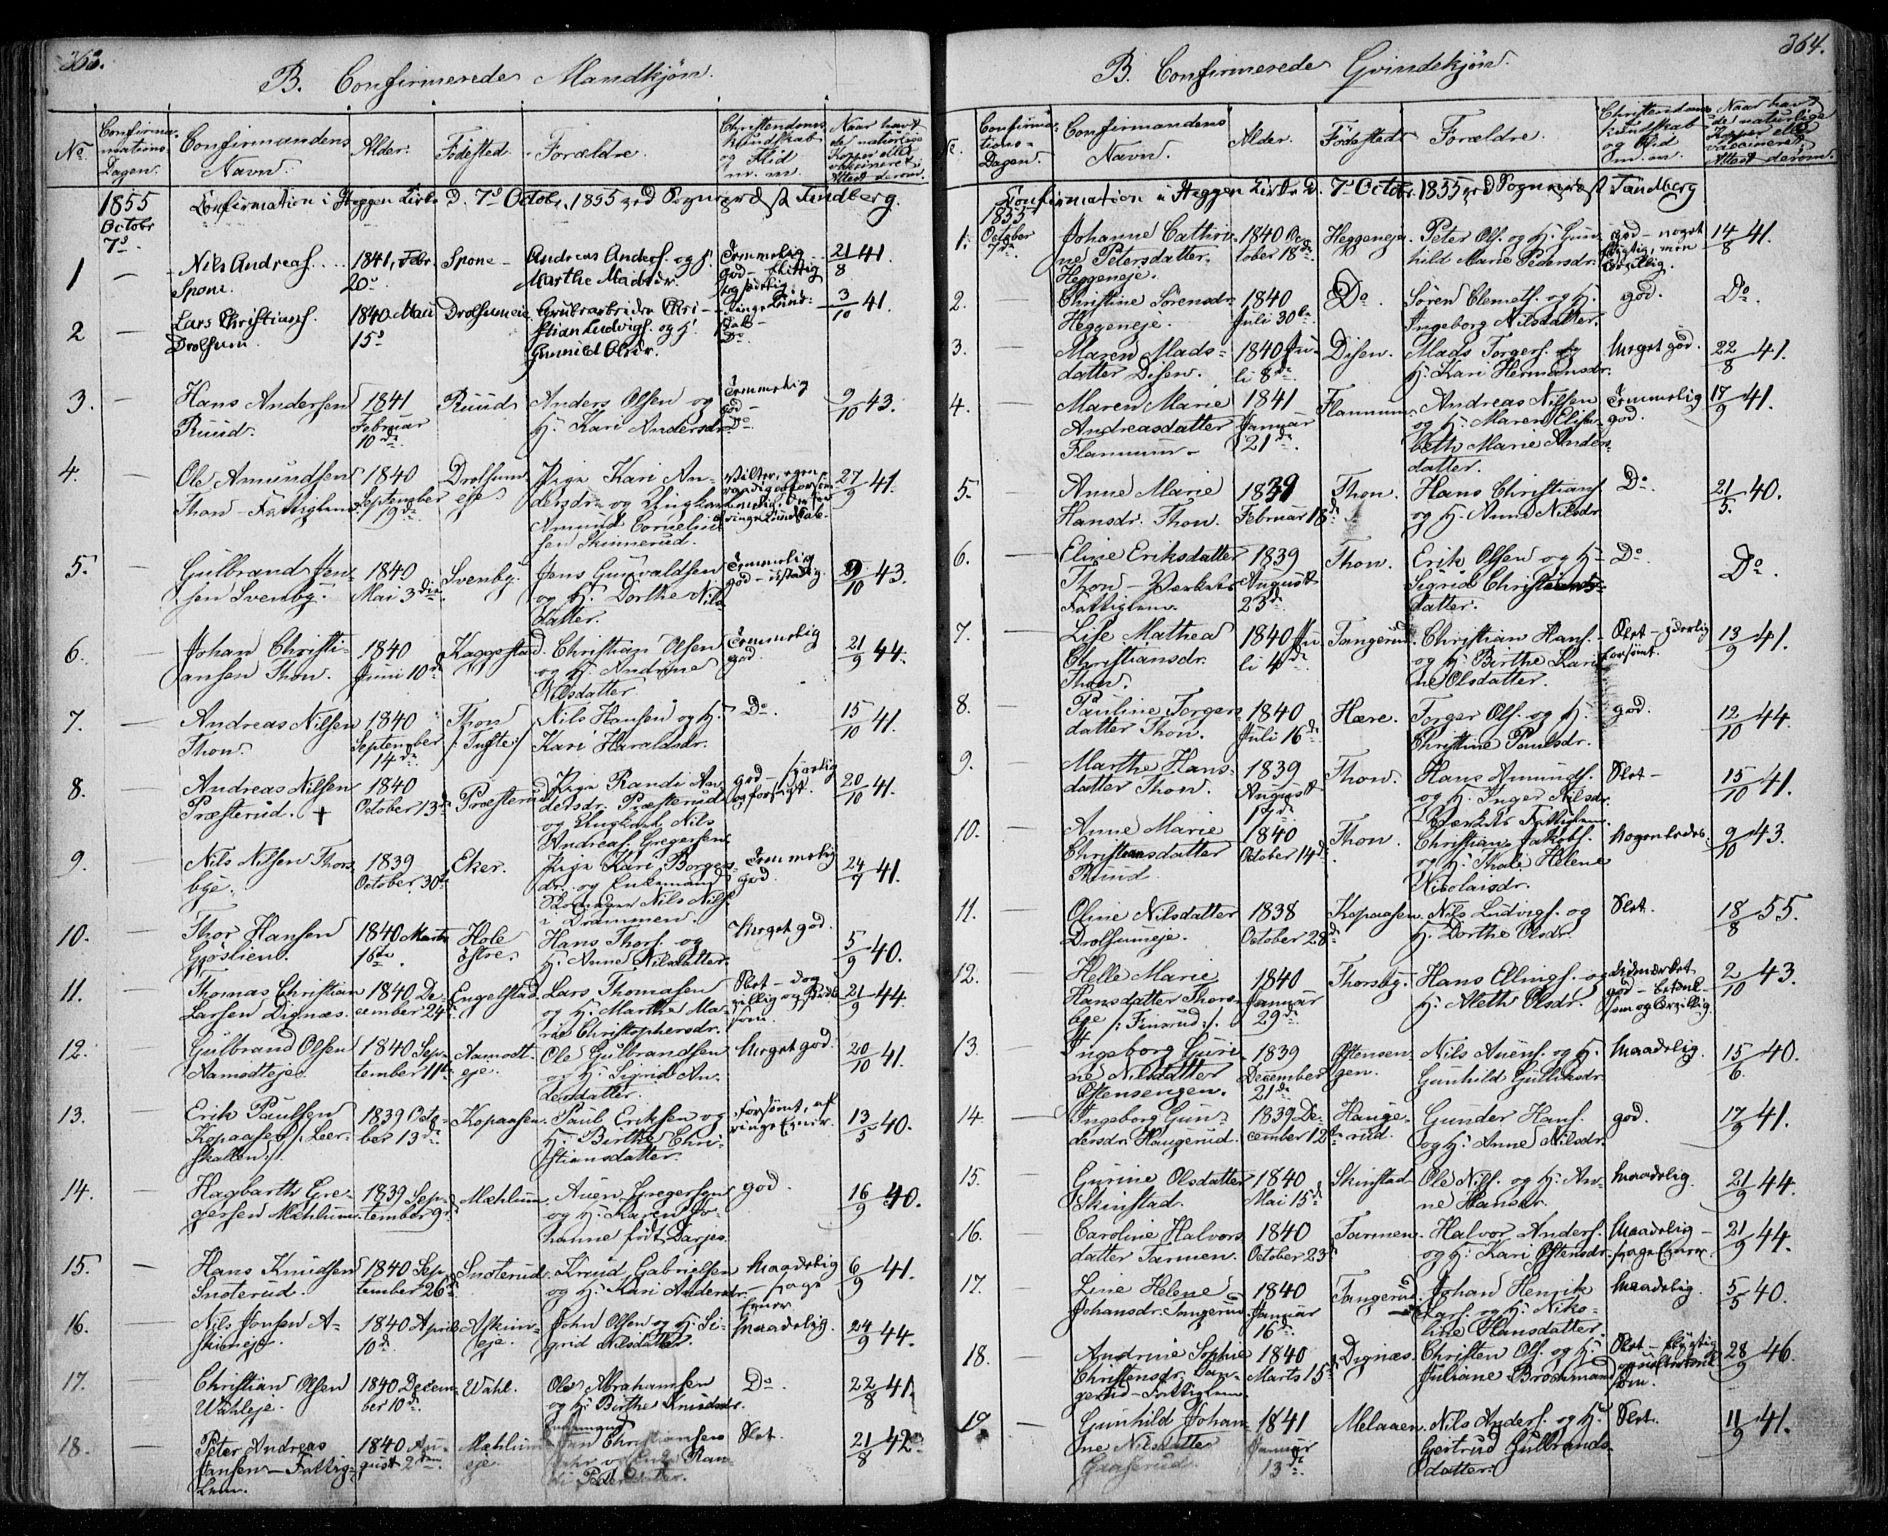 363.
B. Confirmerede Mandkjøn.
No. Confirmationsdagen. Confirmandens Navn. Alder. Fødested. Forældre. Christendoms Kundskab og Flid m. m. Naar havt de naturlige Kopper eller vaccineret; Attest derom.
1855 Confirmation i Heggen Kirke d. 7d Octobr. 1855 ved Sognepræst Tandberg.
Octobr 7d
1 — Nils Andreas. Spone. 1841, Febr. 20d Spone — Andreas Anders. og H. Marthe Madsdr. Temmelig god — flittig og sædelig. 21/8 41.
2 — Lars Christians. Drolsum. 1840 Mai 15d Drolsumeie Grubearbeider Christian Ludvigs. og H. Gunild Olsdr. Ringe Kundskab — Do. 3/10 41.
3. — Hans Andersen Ruud. 1841 Februar 10de Ruud Anders Olsen og H. Kari Andersdr. Temmelig god — Do. 9/10 43.
4. — Ole Amundsen Thon — Fattiglem 1840 September 19de Drolsum eje Pige Kari Andersdr. og Ungkarl Amund Cornelius sen Skinnerud. 27/9 41.
5. — Gulbrand Jensen Svenby. 1840 Mai 3die Svenby. Jens Gunvaldsen og H. Dorthe Nilsdatter. Temmelig god — ustadig 9/10 43.
6. — Johan Christiansen Thon. 1840 Juni 10de Kaggestad Christian Olsen og H. Andrine Nilsdatter Temmelig god. 21/9 44.
7. — Andreas Nilsen Thon. 1840 September 14de Thon /: Tufte :/ Nils Hansen og H. Kari Haraldsdr. Do. 15/10 41.
8. — Andreas Nilsen Præsterud. + 1840 October 13de Præsterud Pige Randi Andersdr. Præsterud og Ungkarl Nils Andreas. Gregersen god — 20/10 41.
9. — Nils Nilsen Thorsbye. 1839 October 30te Eker. Pige Kari Borgersdr. og Enkemand Nils Nils. i Drammen. Temmelig god. 24/7 41.
10. — Thor Hansen Gjøslien. 1840 Marts 16de Hole østre. Hans Thors. og H. Anne Nilsdatter. Meget god. 5/9 40.
11. — Thomas Christian Larsen Dignæs. 1840 December 24de Engelstad Lars Thomasen og H. Marthe Marie Christophersdr. Slet — dog villig og 21/9 44.
12. — Gulbrand Olsen Aamodteje. 1840 September 11te Aamodteje. Ole Gulbrandsen og H. Sigrid Andersdatter. Meget god. 20/10 41.
13. — Erik Paulsen Kopaasen /: Leerskallen :/ 1839 October 13de Kopaasen. Paul Eriksen og H. Birthe Christiansdatter. Forsømt, af ringe Evner. 13/5 40.
14. — Hagbarth Gregersen Mæhlum. 1839 September 9de Mæhlum Auen Gregersen og H. Karen Johanne født Darjes. god. 16/9 40.
15. — Hans Knudsen Snoterud. 1840 September 26de Snoterud Knud Gabrielsen og H. Kari Andersdr. Maadelig — svage Evner 6/9 41.
16. — Nils Johnsen Askimeje. 1840 April 10de Askimeje. John Olsen og H. Sigrid Nilsdatter. Maadelig. 24/9 44.
17. — Christian Olsen Wahleje. 1840 December 10de Wahl. Ole Abrahamsen og H. Birthe Knudsdr. Do. 22/8 41.
18. — Peter Andreas Jansen — Fattiglem. 1840 August 2den Mæhlumeje. Enkemand Jan Christiansen Randi Pedersdatter. Slet. 21/8 42.
364.
B. Confirmerede Qvindekjøn.
No. Confirmations-Dagen. Confirmandens Navn. Alder. Fødested. Forældre. Christendoms Kundskab og Flid m. m. Naar havt de naturlige Kopper eller vaccineret; Attest derom.
Confirmation i Heggen Kirke d. 7d Octobr. 1855 ved Sognepræst Tandberg
1855 October 7de
1. Johanne Cathrine Petersdatter Heggeneje. 1840 October 18de Heggeneje. Peter Ols. og H. Gunhild Marie Pedersdr. god — noget men 14/8 41.
2. — Christine Sørensdr. Heggeneje. 1840 Juli 30te Do. Søren Clemets. og H. Ingeborg Nilsdatter. god. Do.
3. — Maren Madsdatter Disen. 1840 Juli 8de Disen. Mads Torgers. og H. Kari Hermansdr. Meget god. 22/8 41.
4. — Maren Marie Andreasdatter Flannum — 1841 Januar 21de Flannum. Andreas Nilsen og H. Maren Elisabeth Marie Andersdatter. Temmelig god. 17/9 41.
5. — Anne Marie Hansdr. Thon. 1839 Februar 18de Thon. Hans Christians. og H. Anne Nilsdr. Do. 21/5. 40.
6. — Eline Eriksdatter Thon — Værkets Fattiglem. 1839 August 23de Thon. Erik Olsen og H. Sigrid Christiansdatter. Do. Do.
7. — Lise Mathea Christiansdr. Thon. 1840 Juli 4de Tangerud. Christian Hans. og H. Birthe Karine Olsdatter. Slet — yderlig forsømt. 13/9 41.
8. — Pauline Torgersdatter Thon. 1840 Juli 16de Hære. Torger Ols. og H. Christine Paulsdr. god. 12/10 44.
9. — Marthe Hansdatter Thon. 1839 August 19de Thon. Hans Amunds. og H. Inger Nilsdr. Værkets Fattiglem. Slet — 15/10 41.
10. — Anne Marie Christiansdatter Ruud. 1840 October 14de Thon. Christian Jakobs. og H. Thale Helene Nicolaisdr. Nogenledes. 9/10 43.
11. — Oline Nilsdatter Drolsumeje. 1838 October 28de Kopaasen. Nils Ludvigs. og H. Dorthe Olsdr. Slet. 18/8 55.
12. — Helle Marie Hansdatter Thorsbye /: Finsrud :/. 1840 Januar 29de Thorsby. Hans Ellings. og H. Aleth Olsdr. Udmærket god — betænksom og lærvillig. 2/10 43.
13. — Ingeborg Gurine Nilsdatter Østensengen. 1839 December 21de Østensengen. Nils Auens. og H. Gunhild Gulliksdr. Maadelig. 15/6. 40.
14. — Ingeborg Gundersdr. Haugerud. 1839 December 12te Haugerud. Gunder Hans. og H. Anne Nilsdr. god. 17/9 41.
15. — Gurine Olsdatter Skinstad. 1840 Mai 15de Skinstad Ole Nils. og H. Anne Hansdr. Maadelig. 21/9 44.
16. — Caroline Halvorsdatter Tarmen. 1840 October 23de Tarmen. Halvor Anders. og H. Kari Østensdr. Maadelig — svage Evner 21/9 44.
17. — Line Helene Johansdr. Tangerud. 1840 Januar 16de Tangerud Johan Henrik Lars. og H. Nikoline Hansdatter. Maadelig. 5/5 40.
18. — Andrine Sophie Christensdr. Tangerud — Fattiglem. 1840 Marts 15de Dignæs. Christen Ols. og H. Juliane Brochmand Slet — 28/9 46.
19. — Gunhild Johanne Nilsdatter Gaaserud. 1841 Januar 13de Melaaen. Nils Anders. og H. Gertrud Gulbrandsdatter. Slet. 11/9 41.